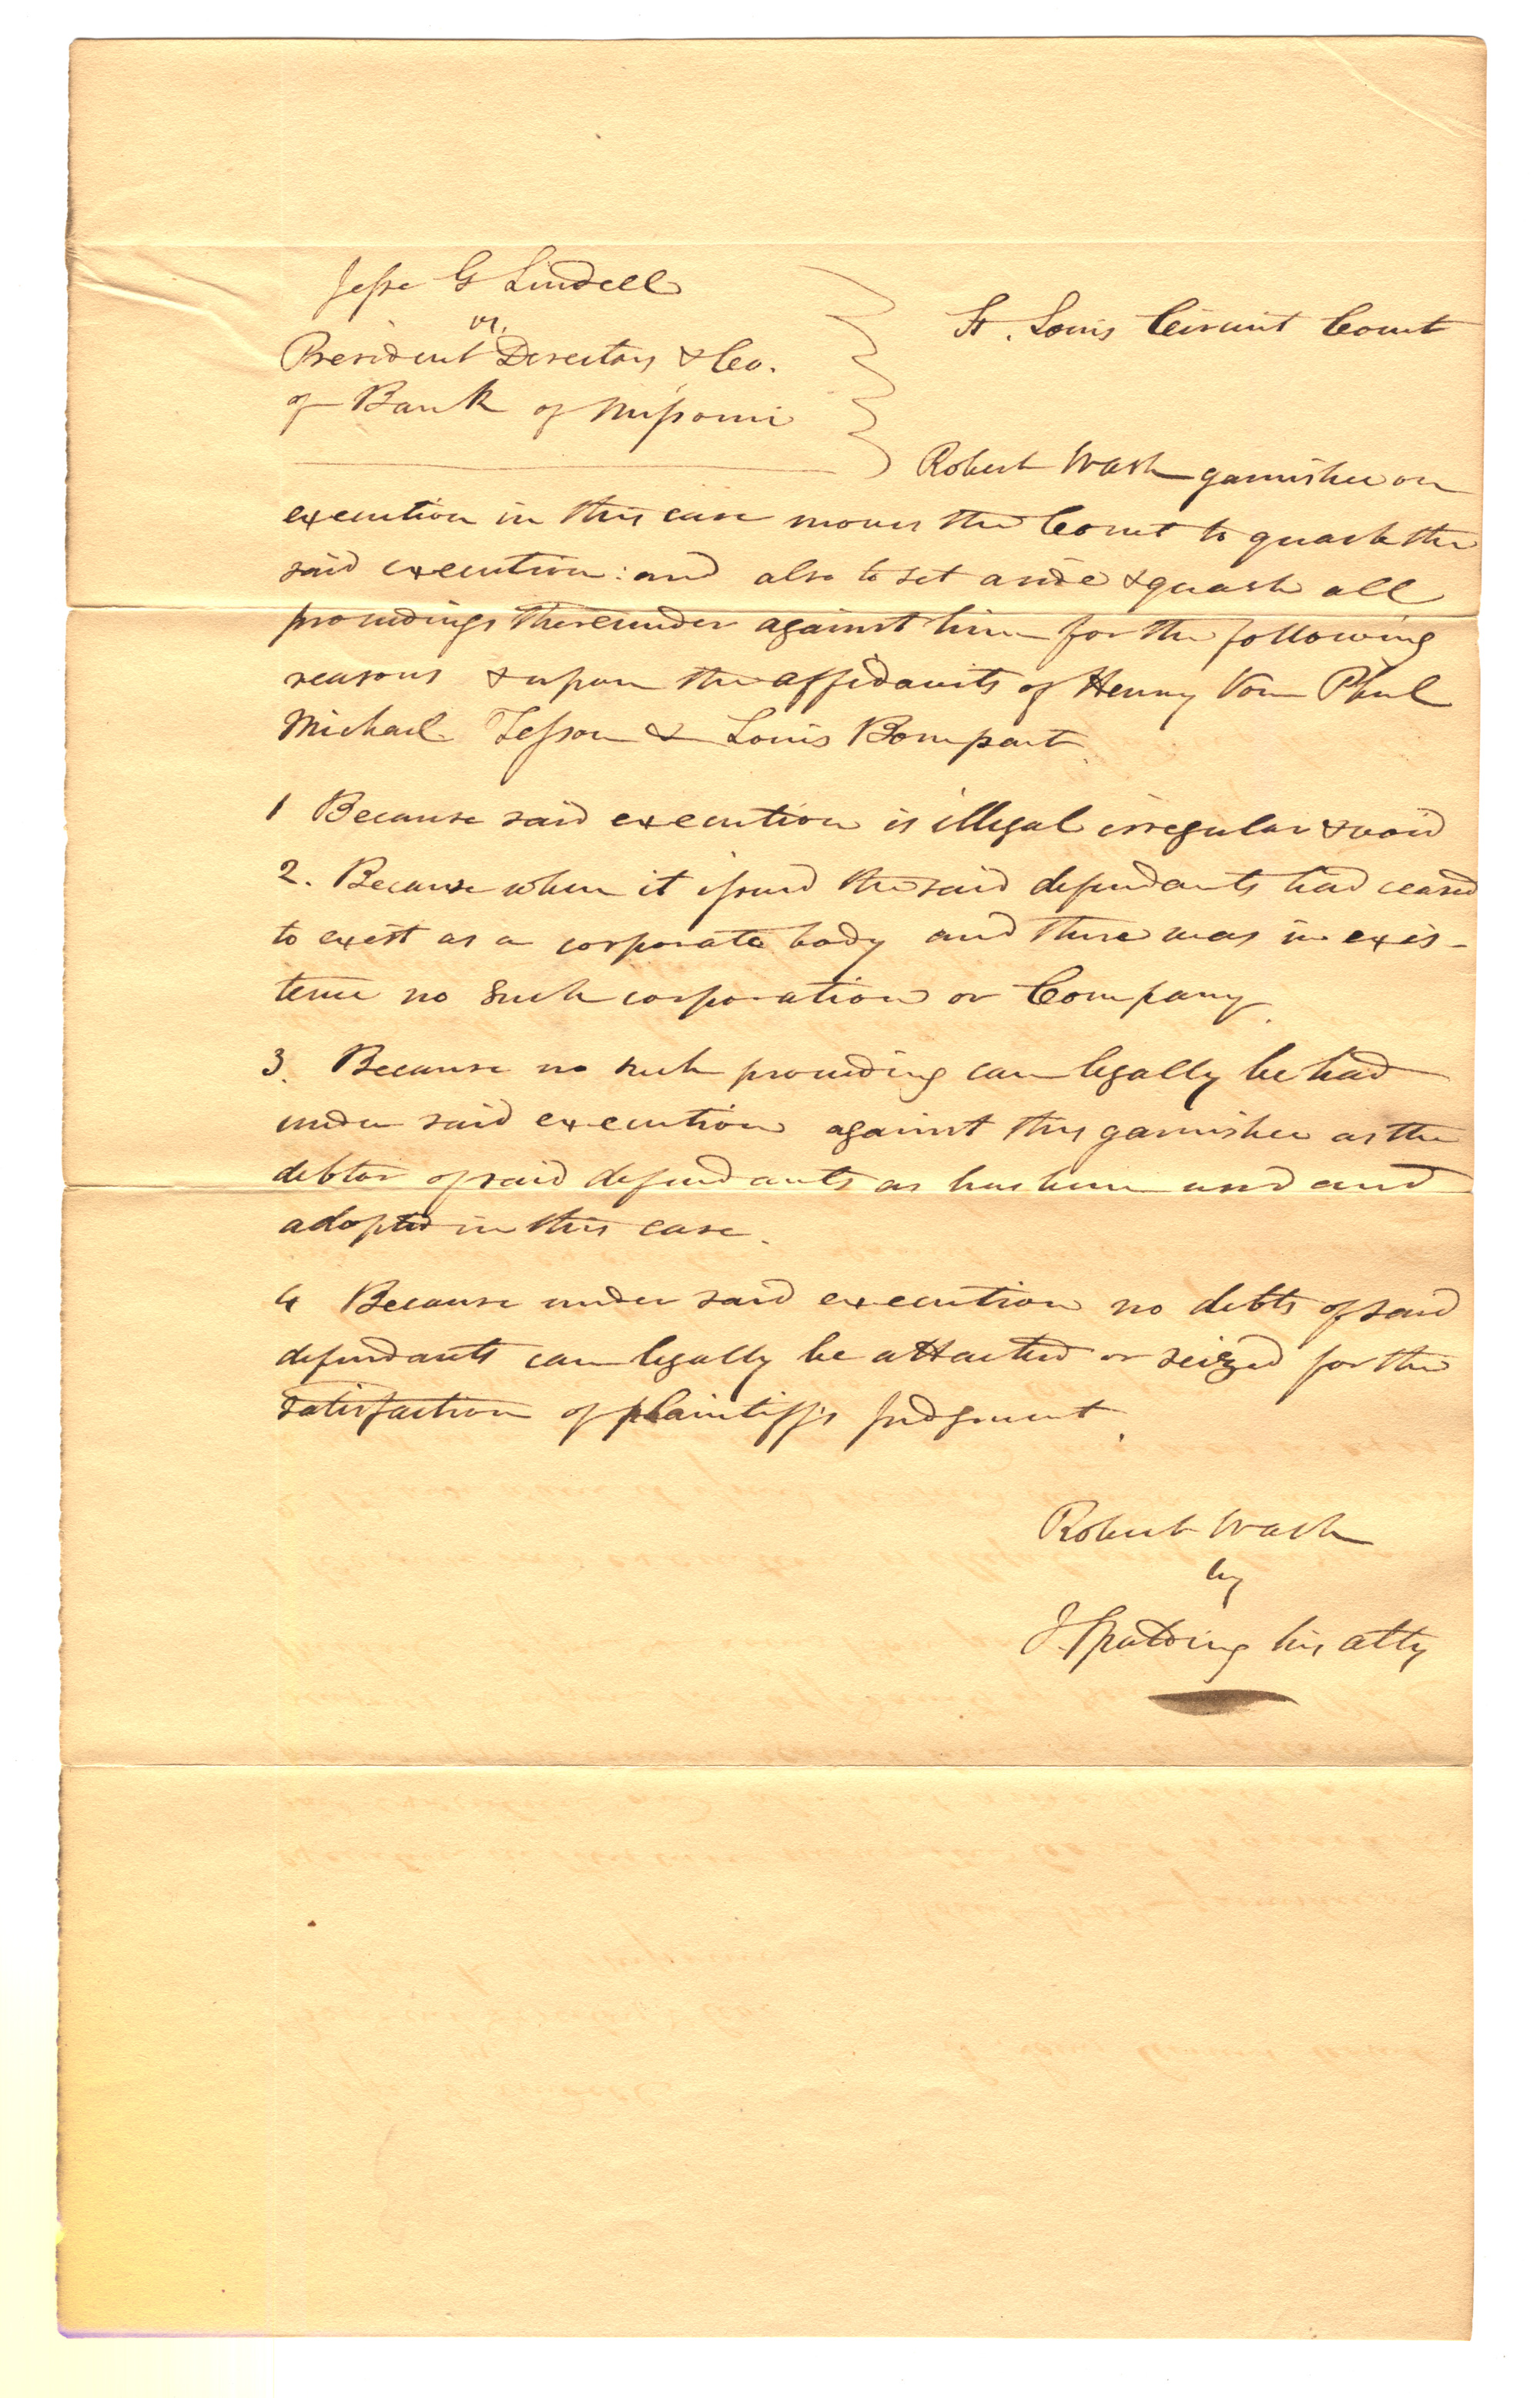 Jesse G Lindell
vs.
President Directors & Co.
of Bank of Missouri
St. Louis Circuit Court
Robert Wash garnishee on
execution in this case moves the Court to quash the
said execution: and also to set aside & quash all
proceedings thereunder against him for the following
reasons & upon the affidavits of Henry Von Phul
Michael Tesson & Louis Bompart.
1 Because said execution is illegal irregular & void
2. Because when it issued the said defendants had ceased
to exist as a corporate body and there was in exis-
tence no such corporation or Company.
3. Because no such proceeding can legally be had
under said execution against this garnishee as the
debtor of said defendants as has been used and
adopted in this case.
4 Because under said execution no debts of said
defendants can legally be attached or seized for the
satisfaction of plaintiff's judgment.
Robert Wash
by
J. Spalding his atty